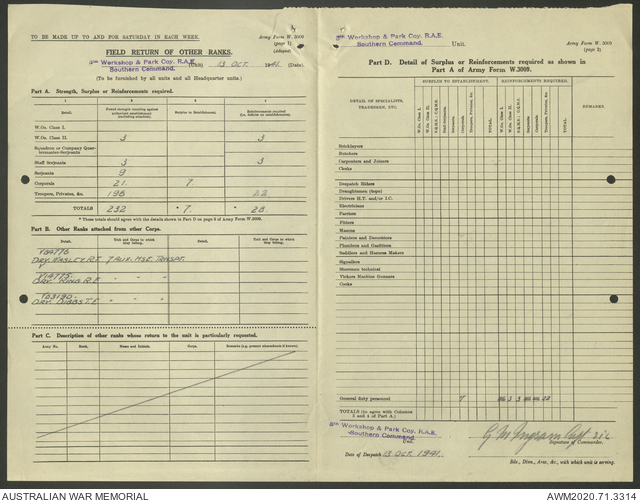 TO BE MADE UP TO AND FOR SATURDAY IN EACH WEEK.
Army Form W. 3009
(page 1)
(Adapted)
FIELD RETURN OF OTHER RANKS.
5th Workshop & Park Coy. R.A.E.
Southern Command.
(Unit) 13 OCT. 1941. (Date).
(To be furnished by all units and all Headquarter units.)
Part A. Strength, Surplus or Reinforcements required.
1 2 3 4
Detail.
Surplus to Establishment.
Reinforcements required
W.Os. Class I.
W.Os. Class II. 3 3
Squadron or Company Quartermaster-Serjeants
Staff Serjeants 3 3
Serjeants 9
Corporals 21. 7
Troopers, Privates, &c. 196 22
TOTALS 232 * 7. * 28
* These totals should agree with the details shown in Part D on page 2 of Army Form W.3009.
Part B. Other Ranks attached from other Corps.
Detail. Unit and Corps to which they belong. Detail. Unit and Corps to which they belong.
DVR. R.T. 7 AUX. HSE. TRANSPT.
V14775.
DVR. RING R.E. " " "
DVR. DIBBS T.E " " "
Part C. Description of other ranks whose return to the unit is particularly requested.
Army No. Rank. Name and Initials. Corps. Remarks (e.g. present whereabouts if known).
5th Workshop & Park Coy. R.A.E.
Southern Command. Unit.
Army Form W. 3009
(page 2)
Part D. Detail of Surplus or Reinforcements required as shown in
Part A of Army Form W.3009.
DETAIL OF SPECIALISTS, TRADESMEN, ETC.
SURPLUS TO ESTABLISHMENT. REINFORCEMENTS REQUIRED.
REMARKS.
W.Os. Class I.
W.Os. Class II.
Staff Serjeants
Serjeants
Corporals
Troopers, Privates, &c.
TOTAL
W.Os. Class I.
W.Os. Class II.
Staff Serjeants
Serjeants
Corporals
Troopers, Privates, &c.
TOTAL
Bricklayers
Butchers
Carpenters and Joiners
Clerks
Despatch Riders
Draughtsmen (topo)
Drivers H.T. and/or I.C.
Electricians
Farriers
Fitters
Masons
Painters and Decorators
Plumbers and Gasfitters
Saddlers and Harness Makers
Signallers
Storeman technical
Vickers Machine Gunners
Cooks
General duty personnel 7 3 3 22
TOTALS (to agree with Columns
3 and 4 of Part A)
5th Workshop & Park Coy. R.A.E.
Southern Command.
Unit.
G M Ingram Capt 2ic
Signature of Commander.
Date of Despatch 13 OCT. 1941.
Bde., Divn., Area, &c., with which unit is serving.
AUSTRALIAN WAR MEMORIAL
AWM2020.71.3314